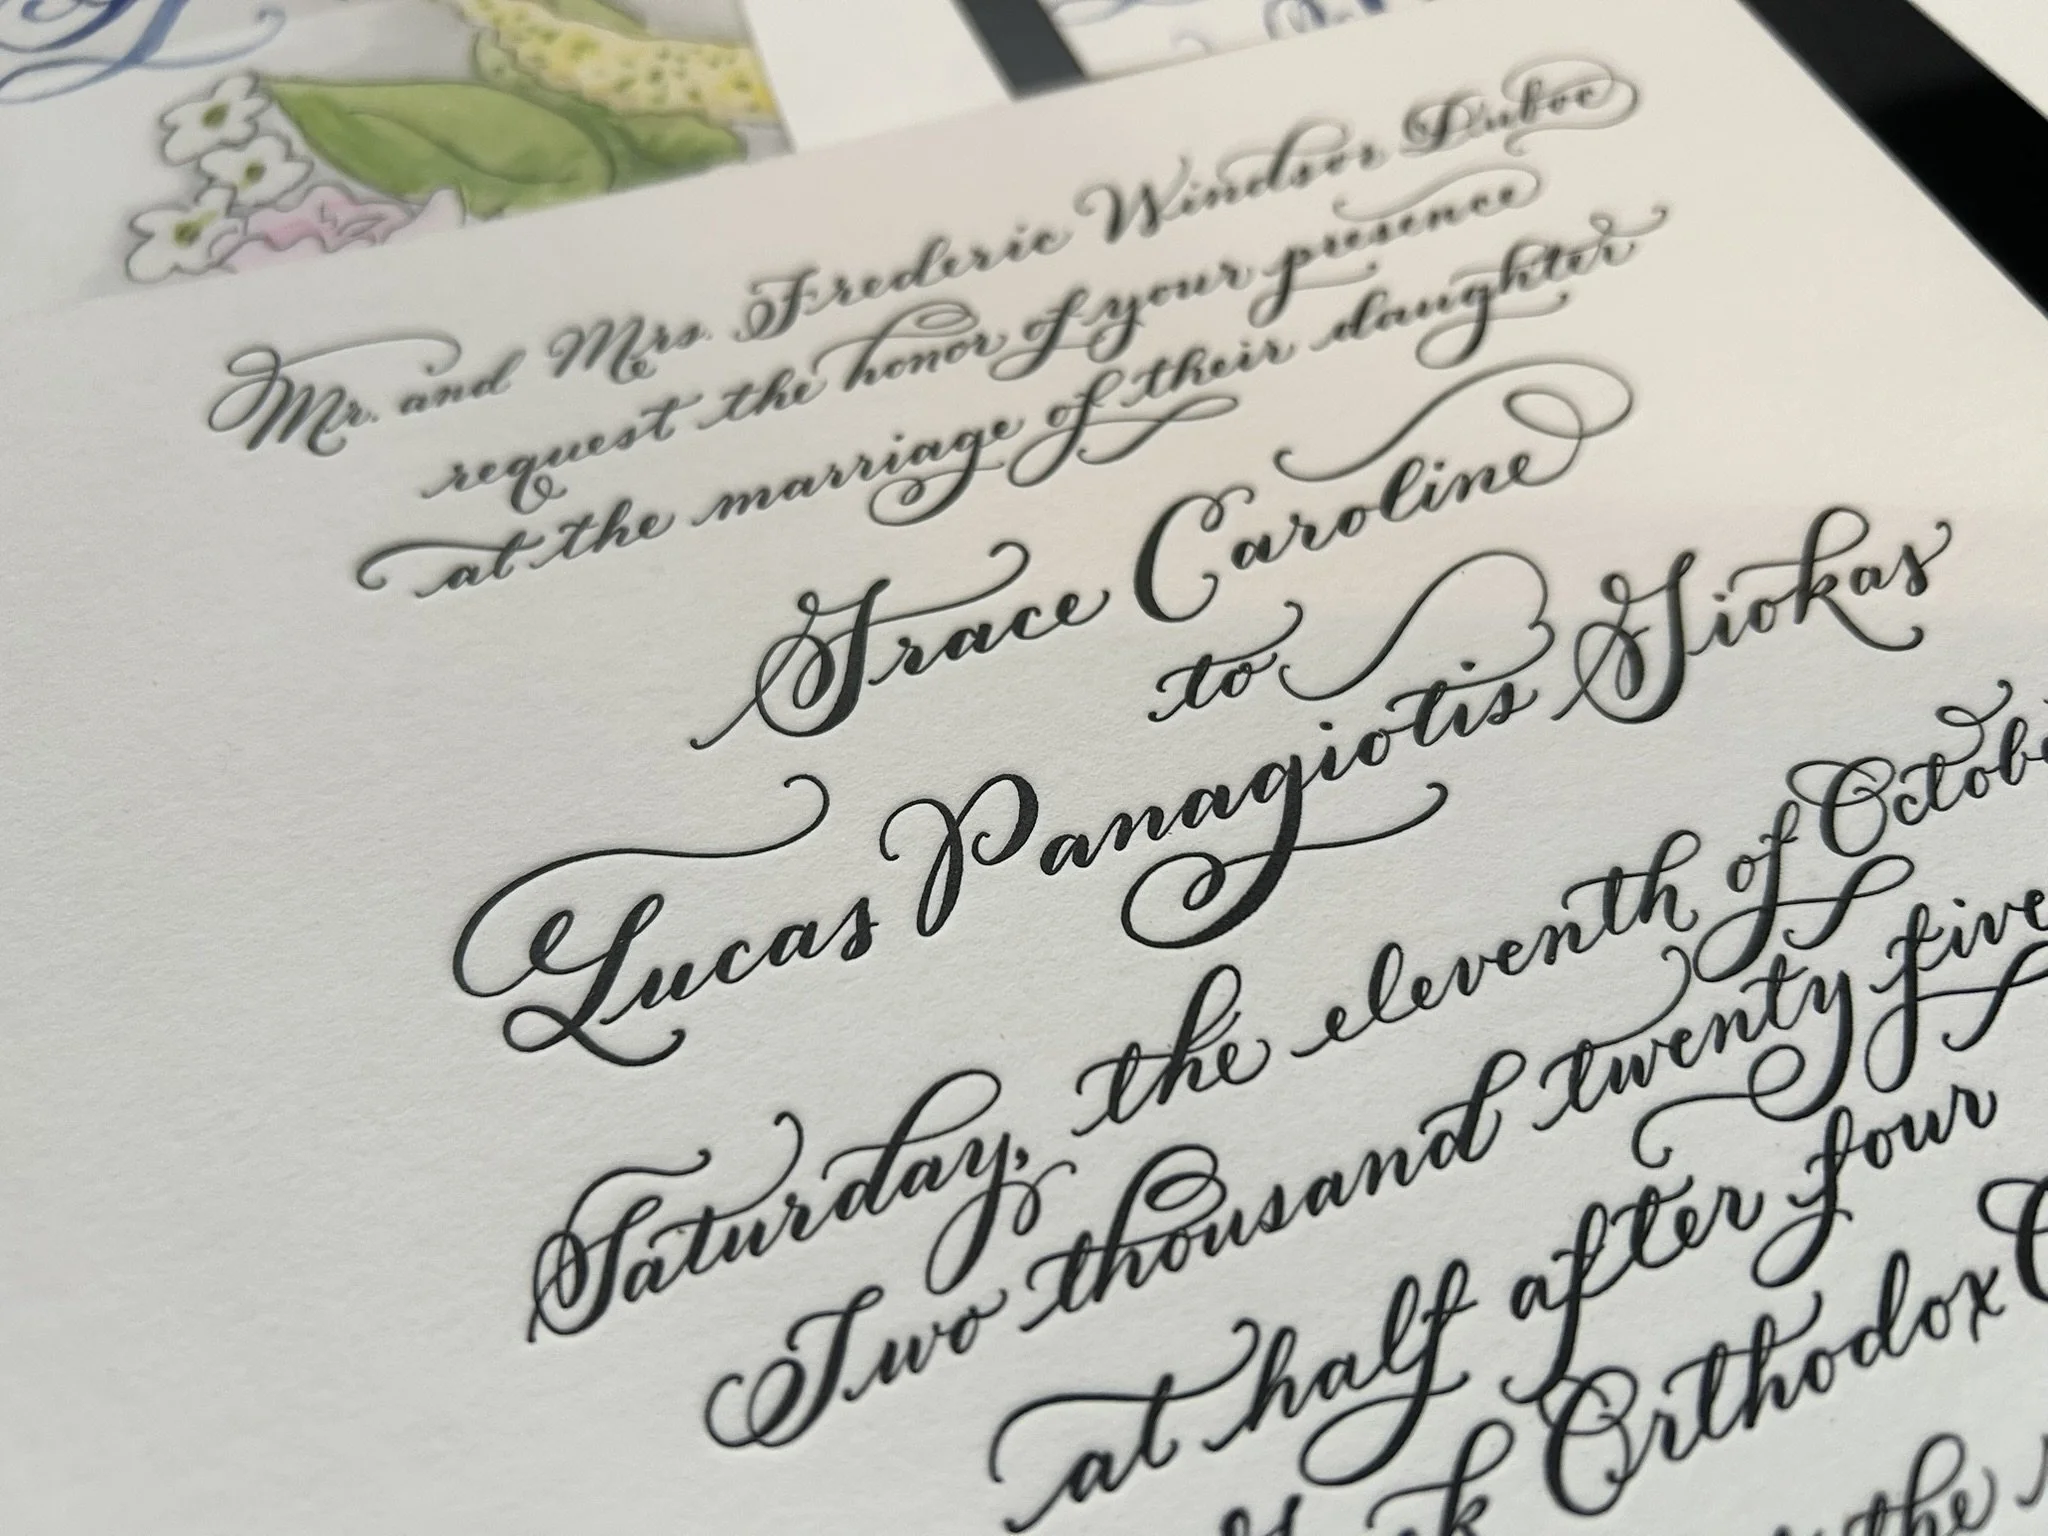 Mr. and Mrs. Frederic Windsor Duboc
request the honor of your presence
at the marriage of their daughter
Grace Caroline
to
Lucas Panagiotis Giokas
Saturday, the eleventh of Octob
Two thousand twenty five
at half after four
k Orthodox C
the